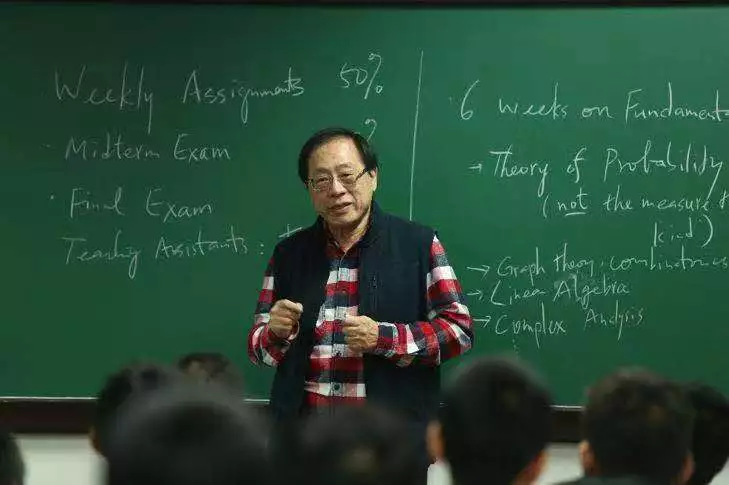 Weekly Assignments 50%
· Midterm Exam ?
· Final Exam
Teaching Assistants:
· 6 weeks on Fundament
→ Theory of Probability
(not the measure
kind)
→ Graph theory, combinatorics
→ Linear Algebra
→ Complex Analysis